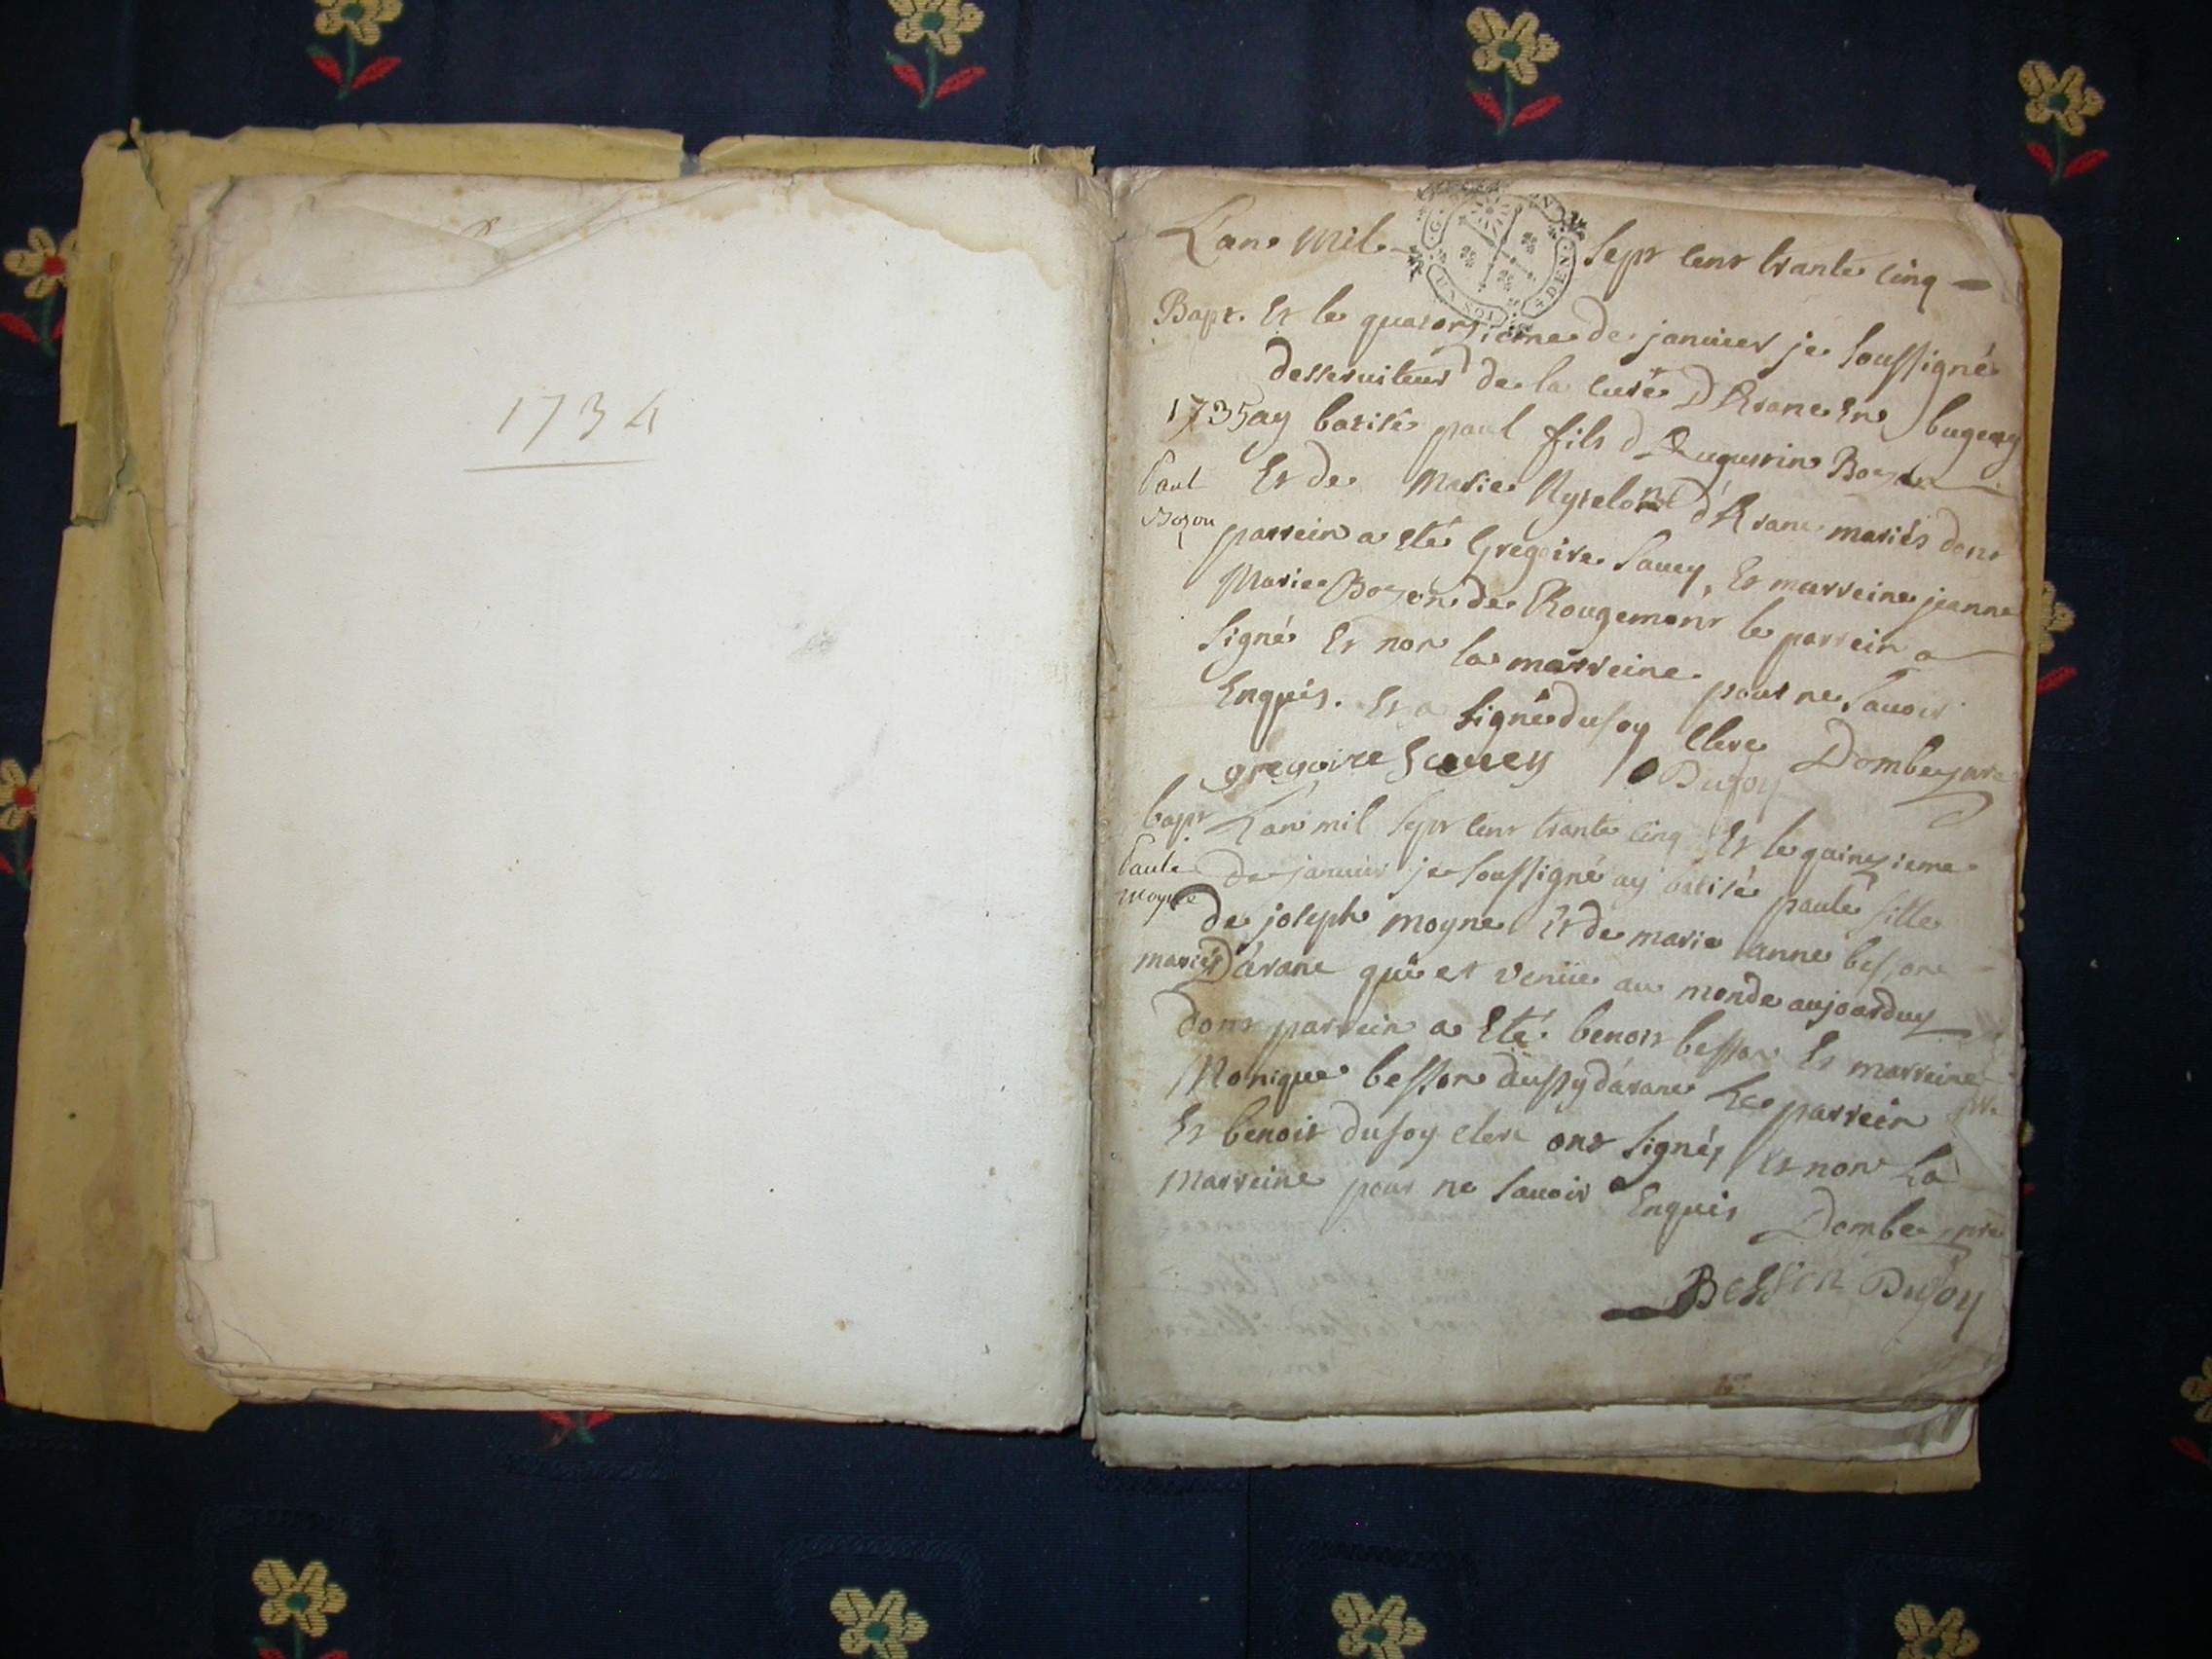 1734
L'an mil sept cent trante cinq
Bapt. Et le quatorzieme de janvier je soussigné
desserviteur de la cure D'Arane En bugey
1735 ay batisé paul fils d'Augustin Bozon
Paul Et de Marie d'Arane mariés dont
Bozon parrein a Eté Gregoire Savey, Et marreine jeanne
Marie Bozon de Rougemont le parrein a
signé Et non la marreine pour ne savoir
Enquis. Et a signé dufoy clerc Dombey
gregoire Savey Dufoy
bapt L'an mil sept cent trante cinq Et le quinzieme
Paule de janvier je soussigné ay batisé paule fille
moyne de joseph moyne Et de marie anne besson
mariés D'arane qui est venüe au monde aujoarduy
dont parrein a Eté benoit besson Et marreine
Monique besson aussy d'arane Le parrein
Et benoit dufoy clerc ont signés Et non La
Marreine pour ne savoir Enquis Dombey ptre
Besson Dufoy